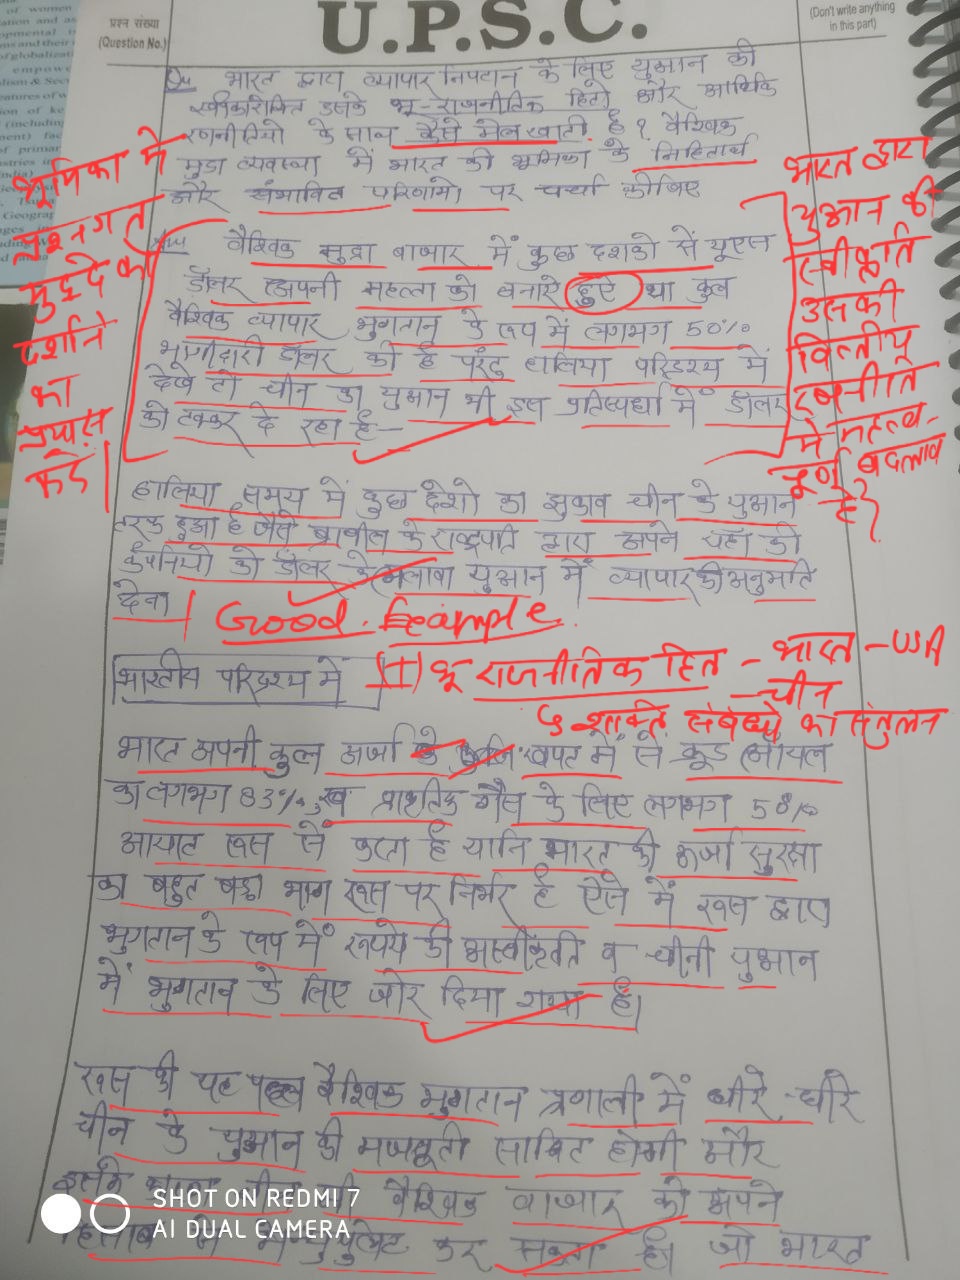 U.P.S.C.
प्रश्न संख्या
(Question No.)
(Don't write anything
in this part)
Qu भारत द्वारा व्यापार निपटान के लिए युआन की
स्वीकारोक्ति इसके भू-राजनीतिक हितो और आर्थिक
रणनीतियो के साथ कैसे मेल खाती है ? वैश्विक
मुद्रा व्यवस्था में भारत की भूमिका के निहितार्थ
और संभावित परिणामो पर चर्चा कीजिए
भूमिका में
प्रश्नगत
मुद्दे को
दर्शाने
का
प्रयास
करें।
Ans वैश्विक मुद्रा बाजार में कुछ दशको से यूएस
डॉलर अपनी महत्ता को बनाऐ हुऐ था कुल
वैश्विक व्यापार भुगतान के रूप में लगभग 50%
भागीदारी डॉलर की है परंतु हालिया परिदृश्य में
देखे तो चीन का युआन भी इस प्रतिस्पर्धा में डॉलर
को टक्कर दे रहा है-
भारत द्वारा
युआन की
स्वीकृति
उसकी
वित्तीय
रणनीति
में महत्व-
पूर्ण बदलाव
है।
हालिया समय में कुछ देशो का झुकाव चीन के युआन
तरफ हुआ है जैसे ब्राजील के राष्ट्रपति द्वारा अपने यहाँ की
कंपनियो को डॉलर के अलावा युआन में व्यापार की अनुमति
देना
Good. Example
भारतीय परिदृश्य में
(I) भू राजनीतिक हित - भारत - USA
- चीन
↳ शक्ति संबंधो का संतुलन
भारत अपनी कुल ऊर्जा के खपत में से क्रूड ऑयल
का लगभग 83% एवं प्राकृतिक गैस के लिए लगभग 50%
आयात रूस से करता है यानि भारत की ऊर्जा सुरक्षा
का बहुत बड़ा भाग रूस पर निर्भर है ऐसे में रूस द्वारा
भुगतान के रूप में रूपये की अस्वीकृती व चीनी युआन
में भुगतान के लिए जोर दिया गया है।
रूस की यह पहल वैश्विक भुगतान प्रणाली में धीरे-धीरे
चीन के युआन की मजबूती साबित होगी और
इसके कारण चीन भी वैश्विक बाजार को अपने
हिसाब से कर सकता है। जो भारत
SHOT ON REDMI 7
AI DUAL CAMERA